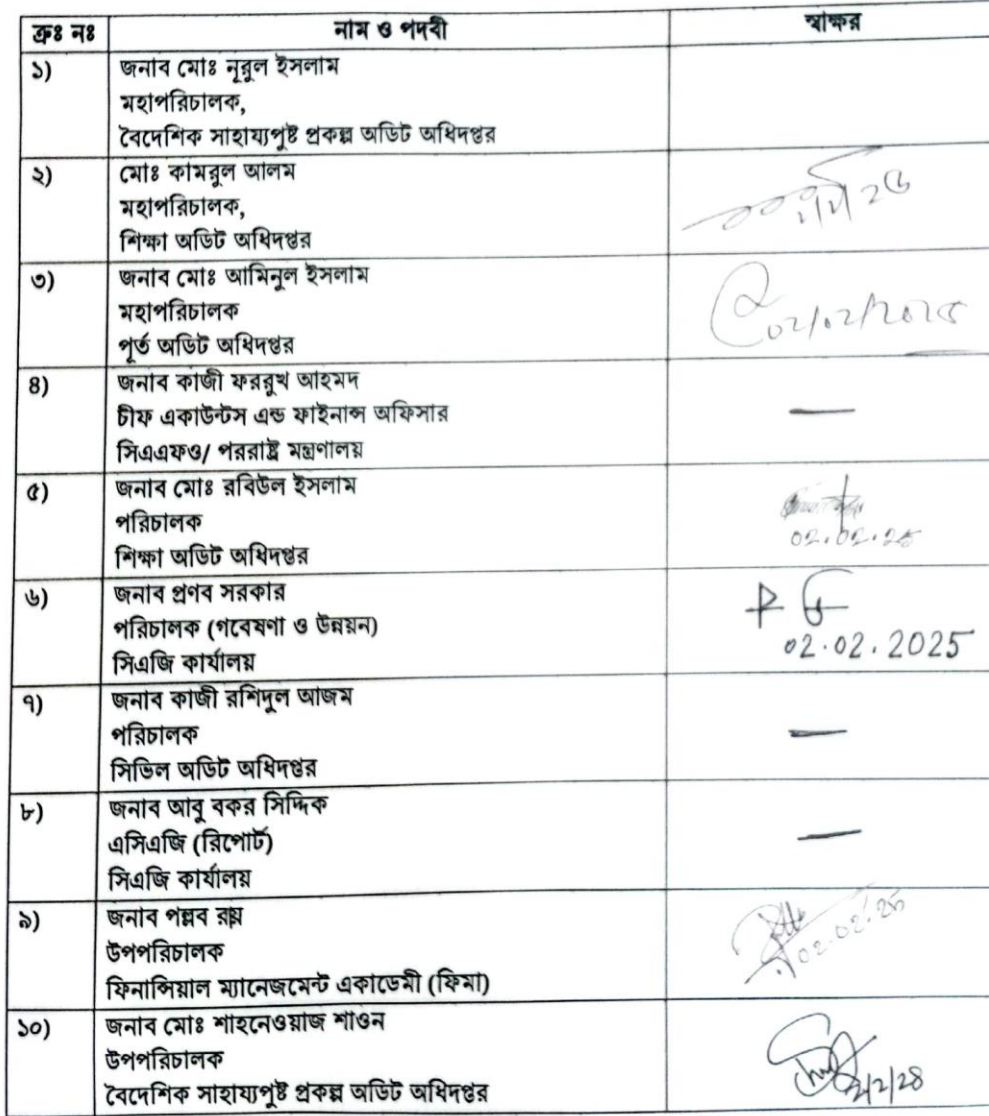 ক্রঃ নঃ নাম ও পদবী স্বাক্ষর
১) জনাব মোঃ নূরুল ইসলাম
মহাপরিচালক,
বৈদেশিক সাহায্যপুষ্ট প্রকল্প অডিট অধিদপ্তর
২) মোঃ কামরুল আলম
মহাপরিচালক,
শিক্ষা অডিট অধিদপ্তর
৩) জনাব মোঃ আমিনুল ইসলাম
মহাপরিচালক
পূর্ত অডিট অধিদপ্তর
02/02/2025
৪) জনাব কাজী ফররুখ আহমদ
চীফ একাউন্টস এন্ড ফাইনান্স অফিসার
সিএএফও/ পররাষ্ট্র মন্ত্রণালয়
৫) জনাব মোঃ রবিউল ইসলাম
পরিচালক
শিক্ষা অডিট অধিদপ্তর
02.02.25
৬) জনাব প্রণব সরকার
পরিচালক (গবেষণা ও উন্নয়ন)
সিএজি কার্যালয় 02.02.2025
৭) জনাব কাজী রশিদুল আজম
পরিচালক
সিভিল অডিট অধিদপ্তর
৮) জনাব আবু বকর সিদ্দিক
এসিএজি (রিপোর্ট)
সিএজি কার্যালয়
৯) জনাব পল্লব রায়
উপপরিচালক 02.02.25
ফিনান্সিয়াল ম্যানেজমেন্ট একাডেমী (ফিমা)
১০) জনাব মোঃ শাহনেওয়াজ শাওন
উপপরিচালক
বৈদেশিক সাহায্যপুষ্ট প্রকল্প অডিট অধিদপ্তর